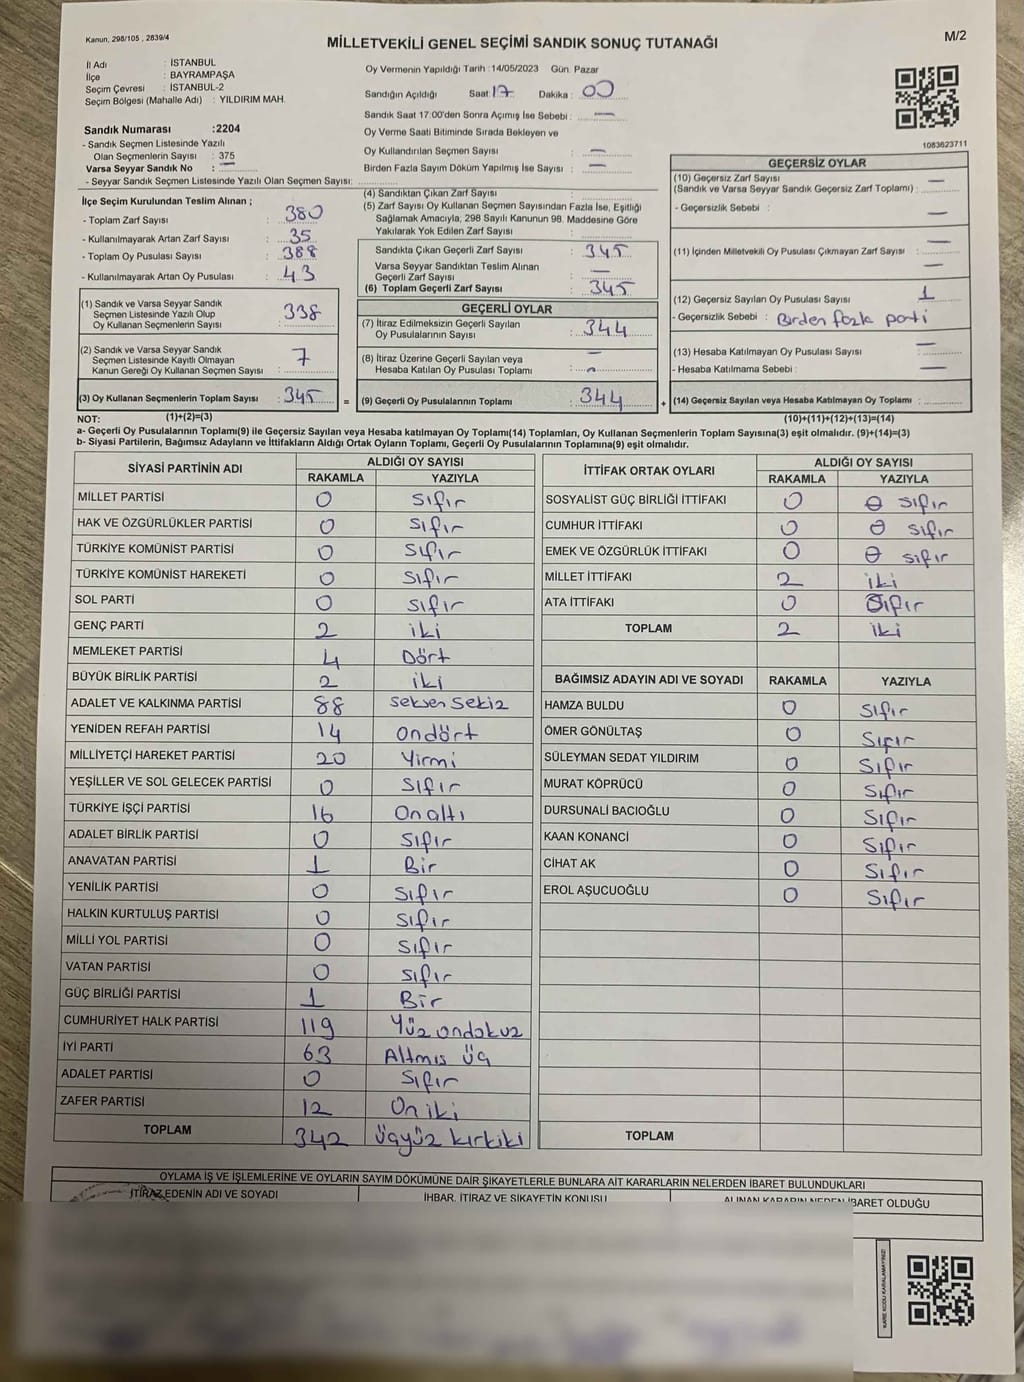 Kanun, 298/105 , 2839/4
M/2
MİLLETVEKİLİ GENEL SEÇİMİ SANDIK SONUÇ TUTANAĞI
İl Adı : İSTANBUL
İlçe : BAYRAMPAŞA
Seçim Çevresi : İSTANBUL-2
Seçim Bölgesi (Mahalle Adı) : YILDIRIM MAH.
Oy Vermenin Yapıldığı Tarih :14/05/2023 Gün: Pazar
Sandığın Açıldığı Saat: 17 Dakika : 00
Sandık Saat 17:00'den Sonra Açımış İse Sebebi : —
Oy Verme Saati Bitiminde Sırada Bekleyen ve
Oy Kullandırılan Seçmen Sayısı : —
Birden Fazla Sayım Döküm Yapılmış İse Sayısı : —
1083623711
Sandık Numarası :2204
- Sandık Seçmen Listesinde Yazılı
Olan Seçmenlerin Sayısı : 375
Varsa Seyyar Sandık No : —
- Seyyar Sandık Seçmen Listesinde Yazılı Olan Seçmen Sayısı:
İlçe Seçim Kurulundan Teslim Alınan ;
- Toplam Zarf Sayısı : 380
- Kullanılmayarak Artan Zarf Sayısı : 35
- Toplam Oy Pusulası Sayısı : 388
- Kullanılmayarak Artan Oy Pusulası : 43
(1) Sandık ve Varsa Seyyar Sandık
Seçmen Listesinde Yazılı Olup
Oy Kullanan Seçmenlerin Sayısı : 338
(2) Sandık ve Varsa Seyyar Sandık
Seçmen Listesinde Kayıtlı Olmayan
Kanun Gereği Oy Kullanan Seçmen Sayısı : 7
(3) Oy Kullanan Seçmenlerin Toplam Sayısı : 345 =
(4) Sandıktan Çıkan Zarf Sayısı :
(5) Zarf Sayısı Oy Kullanan Seçmen Sayısından Fazla İse, Eşitliği
Sağlamak Amacıyla, 298 Sayılı Kanunun 98. Maddesine Göre
Yakılarak Yok Edilen Zarf Sayısı :
Sandıkta Çıkan Geçerli Zarf Sayısı : 345
Varsa Seyyar Sandıktan Teslim Alınan
Geçerli Zarf Sayısı : —
(6) Toplam Geçerli Zarf Sayısı : 345
GEÇERLİ OYLAR
(7) İtiraz Edilmeksizin Geçerli Sayılan
Oy Pusulalarının Sayısı : 344
(8) İtiraz Üzerine Geçerli Sayılan veya
Hesaba Katılan Oy Pusulası Toplamı : —
(9) Geçerli Oy Pusulalarının Toplamı : 344 +
GEÇERSİZ OYLAR
(10) Geçersiz Zarf Sayısı
(Sandık ve Varsa Seyyar Sandık Geçersiz Zarf Toplamı) : —
- Geçersizlik Sebebi : —
(11) İçinden Milletvekili Oy Pusulası Çıkmayan Zarf Sayısı : —
—
(12) Geçersiz Sayılan Oy Pusulası Sayısı 1
- Geçersizlik Sebebi : Birden fazla parti
(13) Hesaba Katılmayan Oy Pusulası Sayısı : —
- Hesaba Katılmama Sebebi : —
(14) Geçersiz Sayılan veya Hesaba Katılmayan Oy Toplamı :
NOT: (1)+(2)=(3) (10)+(11)+(12)+(13)=(14)
a- Geçerli Oy Pusulalarının Toplamı(9) ile Geçersiz Sayılan veya Hesaba katılmayan Oy Toplamı(14) Toplamları, Oy Kullanan Seçmenlerin Toplam Sayısına(3) eşit olmalıdır. (9)+(14)=(3)
b- Siyasi Partilerin, Bağımsız Adayların ve İttifakların Aldığı Ortak Oyların Toplamı, Geçerli Oy Pusulalarının Toplamına(9) eşit olmalıdır.
SİYASİ PARTİNİN ADI ALDIĞI OY SAYISI
RAKAMLA YAZIYLA
MİLLET PARTİSİ 0 Sıfır
HAK VE ÖZGÜRLÜKLER PARTİSİ 0 Sıfır
TÜRKİYE KOMÜNİST PARTİSİ 0 Sıfır
TÜRKİYE KOMÜNİST HAREKETİ 0 Sıfır
SOL PARTİ 0 Sıfır
GENÇ PARTİ 2 iki
MEMLEKET PARTİSİ 4 Dört
BÜYÜK BİRLİK PARTİSİ 2 iki
ADALET VE KALKINMA PARTİSİ 88 Seksen Sekiz
YENİDEN REFAH PARTİSİ 14 Ondört
MİLLİYETÇİ HAREKET PARTİSİ 20 Yirmi
YEŞİLLER VE SOL GELECEK PARTİSİ 0 Sıfır
TÜRKİYE İŞÇİ PARTİSİ 16 Onaltı
ADALET BİRLİK PARTİSİ 0 Sıfır
ANAVATAN PARTİSİ 1 Bir
YENİLİK PARTİSİ 0 Sıfır
HALKIN KURTULUŞ PARTİSİ 0 Sıfır
MİLLİ YOL PARTİSİ 0 Sıfır
VATAN PARTİSİ 0 Sıfır
GÜÇ BİRLİĞİ PARTİSİ 1 Bir
CUMHURİYET HALK PARTİSİ 119 Yüz ondokuz
İYİ PARTİ 63 Altmış üç
ADALET PARTİSİ 0 Sıfır
ZAFER PARTİSİ 12 On iki
TOPLAM 342 üçyüz kırkiki
İTTİFAK ORTAK OYLARI ALDIĞI OY SAYISI
RAKAMLA YAZIYLA
SOSYALİST GÜÇ BİRLİĞİ İTTİFAKI 0 0 sıfır
CUMHUR İTTİFAKI 0 0 sıfır
EMEK VE ÖZGÜRLÜK İTTİFAKI 0 0 sıfır
MİLLET İTTİFAKI 2 iki
ATA İTTİFAKI 0 Sıfır
TOPLAM 2 iki
BAĞIMSIZ ADAYIN ADI VE SOYADI RAKAMLA YAZIYLA
HAMZA BULDU 0 Sıfır
ÖMER GÖNÜLTAŞ 0 Sıfır
SÜLEYMAN SEDAT YILDIRIM 0 Sıfır
MURAT KÖPRÜCÜ 0 Sıfır
DURSUNALİ BACIOĞLU 0 Sıfır
KAAN KONANCİ 0 Sıfır
CİHAT AK 0 Sıfır
EROL AŞUCUOĞLU 0 Sıfır
TOPLAM
OYLAMA İŞ VE İŞLEMLERİNE VE OYLARIN SAYIM DÖKÜMÜNE DAİR ŞİKAYETLERLE BUNLARA AİT KARARLARIN NELERDEN İBARET BULUNDUKLARI
İTİRAZ EDENİN ADI VE SOYADI İHBAR, İTİRAZ VE ŞİKAYETİN KONUSU ALINAN KARARIN NEDEN İBARET OLDUĞU
KARE KODU KARALAMAYINIZ!